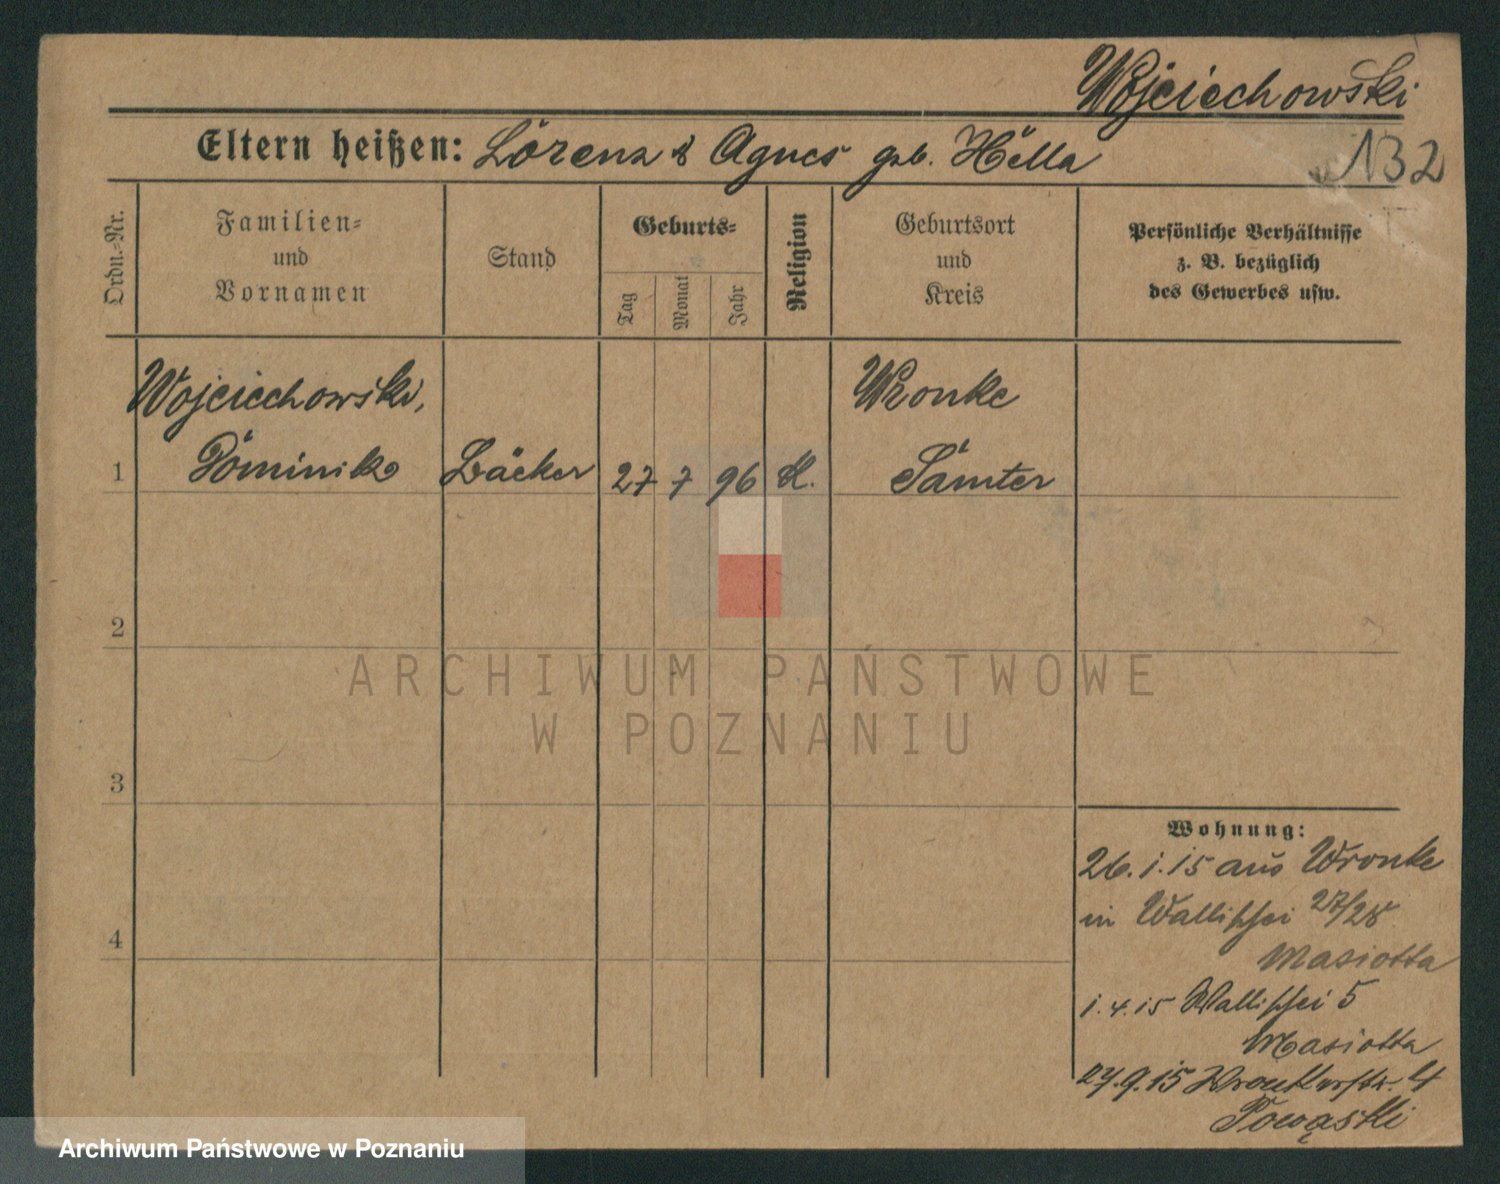 Wojciechowski
132
Eltern heißen: Lorenz & Agnes geb. Hella
Ordn.-Nr.
Familien-
und
Vornamen
Stand
Geburts-
Tag
Monat
Jahr
Religion
Geburtsort
und
Kreis
Persönliche Verhältnisse
z. B. bezüglich
des Gewerbes usw.
Wojciechowski,
Wronke
1 Dominik Bäcker 27 7 96 K. Samter
2
3
4
Wohnung:
26.1.15 aus Wronke
in Wallischei 27/28
Masiotta
1.4.15 Wallischei 5
Masiotta
27.9.15 Wronkerstr. 4
Powąski
ARCHIWUM PAŃSTWOWE
W POZNANIU
Archiwum Państwowe w Poznaniu